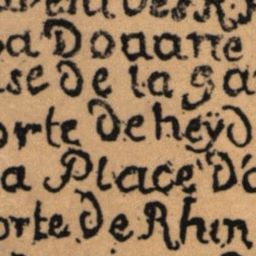 a Douane
se de la ga
orte de heyd
a Place D'
orte de Rhin